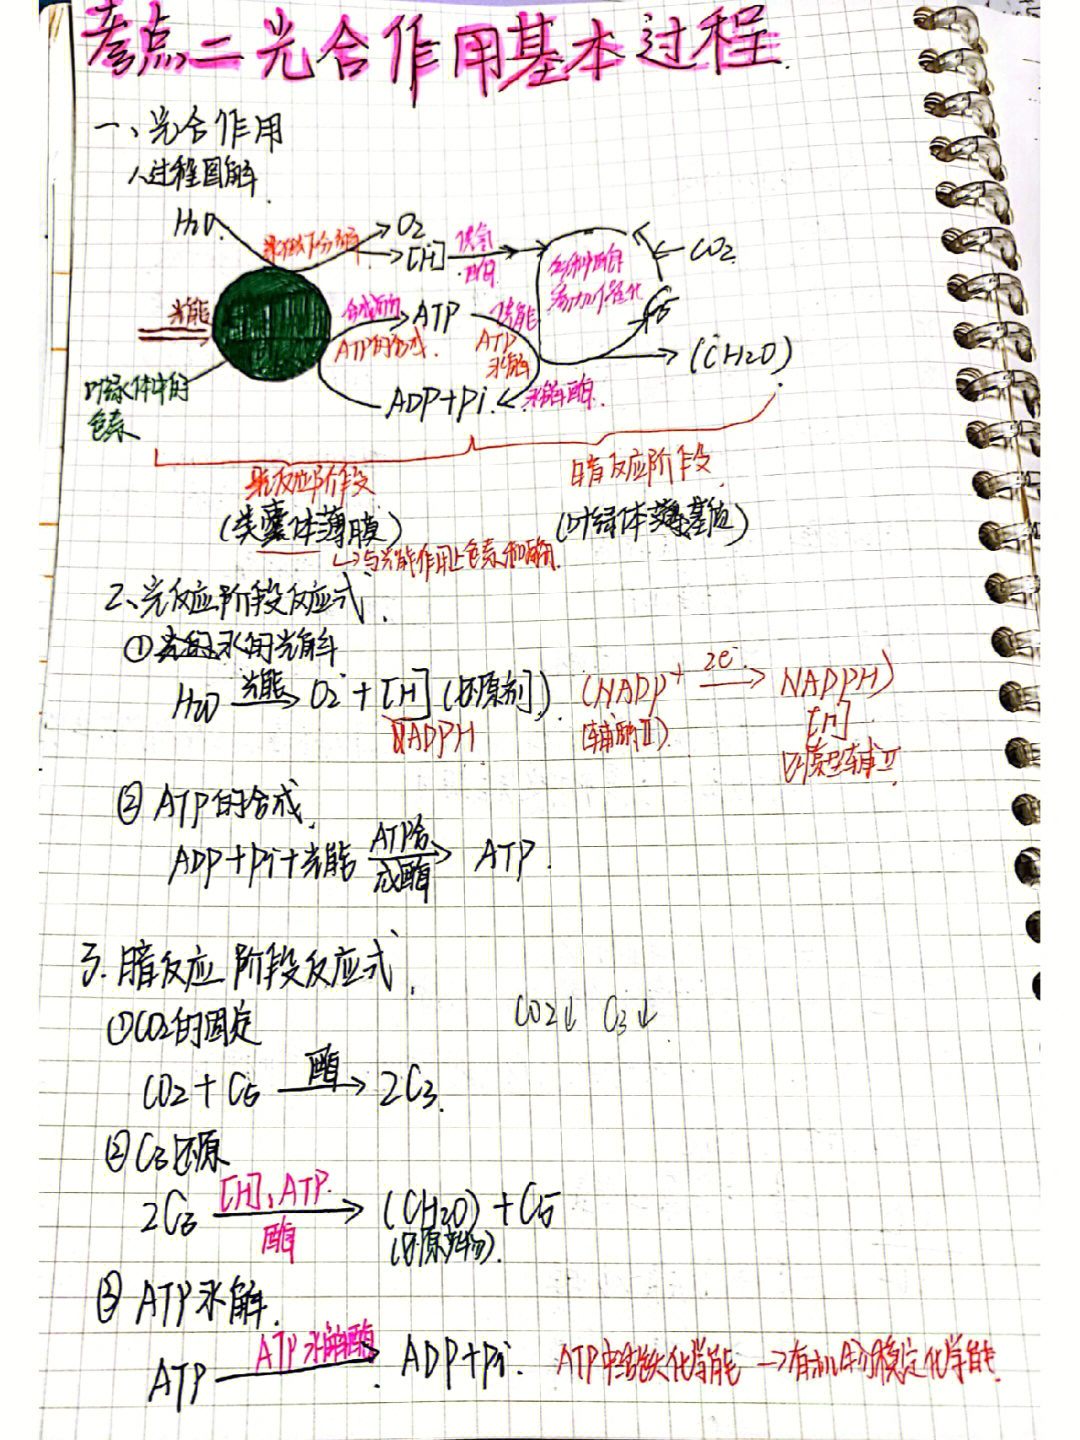 考点二光合作用基本过程.
一、光合作用
1、过程图解.
H2O.
O2
水在光下分解
[H]
供氢
酶
CO2.
光能
合成酶
ATP
供能
多种酶
参加催化
C5
ATP的合成.
ATP
水解
(CH2O)
叶绿体中的
色素
ADP+Pi.
水解酶.
光反应阶段
暗反应阶段.
(类囊体薄膜)
(叶绿体基质)
2、光反应阶段反应式.
①水的光解
H2O 光能 O2+[H](还原剂).
(NADP+ 2e- NADPH)
NADPH
(辅酶Ⅱ)
[H]
②ATP的合成.
ADP+Pi+光能 ATP合成酶 ATP.
3.暗反应阶段反应式.
①CO2的固定
CO2↓ C3↓
CO2+C5 酶 2C3.
②C3还原
2C3 [H]、ATP. 酶 (CH2O)+C5
(还原产物).
③ATP水解.
ATP ATP水解酶 ADP+Pi.
ATP中活跃化学能→有机物稳定化学能.